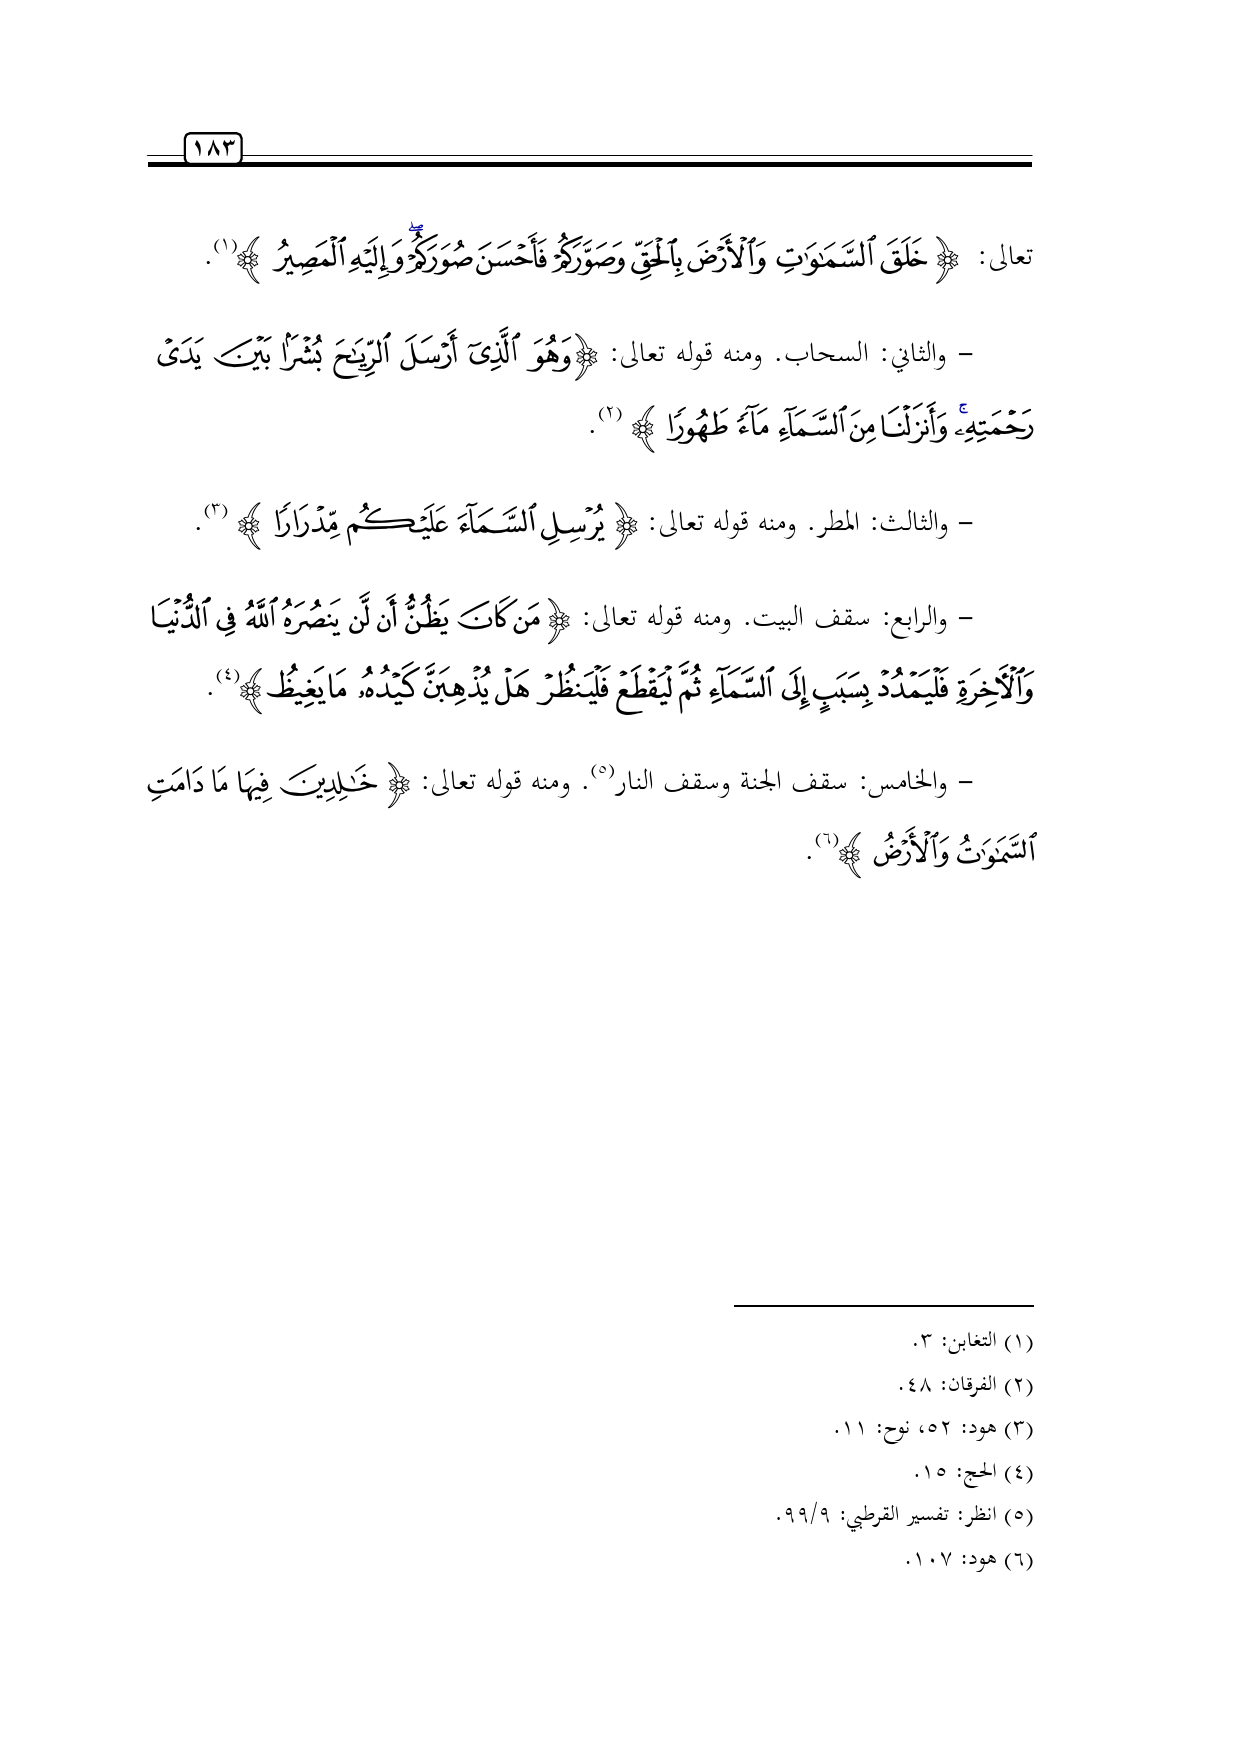 ١٨٣
تعالى: ﴿ خَلَقَ ٱلسَّمَٰوَٰتِ وَٱلۡأَرۡضَ بِٱلۡحَقِّ وَصَوَّرَكُمۡ فَأَحۡسَنَ صُوَرَكُمۡۖ وَإِلَيۡهِ ٱلۡمَصِيرُ ﴾(١).
– والثاني: السحاب. ومنه قوله تعالى: ﴿وَهُوَ ٱلَّذِيٓ أَرۡسَلَ ٱلرِّيَٰحَ بُشۡرَۢا بَيۡنَ يَدَيۡ
رَحۡمَتِهِۦۚ وَأَنزَلۡنَا مِنَ ٱلسَّمَآءِ مَآءٗ طَهُورٗا ﴾ (٢).
– والثالث: المطر. ومنه قوله تعالى: ﴿ يُرۡسِلِ ٱلسَّمَآءَ عَلَيۡكُم مِّدۡرَارٗا ﴾ (٣).
– والرابع: سقف البيت. ومنه قوله تعالى: ﴿ مَن كَانَ يَظُنُّ أَن لَّن يَنصُرَهُ ٱللَّهُ فِي ٱلدُّنۡيَا
وَٱلۡأٓخِرَةِ فَلۡيَمۡدُدۡ بِسَبَبٍ إِلَى ٱلسَّمَآءِ ثُمَّ لۡيَقۡطَعۡ فَلۡيَنظُرۡ هَلۡ يُذۡهِبَنَّ كَيۡدُهُۥ مَا يَغِيظُ ﴾(٤).
– والخامس: سقف الجنة وسقف النار(٥). ومنه قوله تعالى: ﴿ خَٰلِدِينَ فِيهَا مَا دَامَتِ
ٱلسَّمَٰوَٰتُ وَٱلۡأَرۡضُ ﴾(٦).
(١) التغابن: ٣.
(٢) الفرقان: ٤٨.
(٣) هود: ٥٢، نوح: ١١.
(٤) الحج: ١٥.
(٥) انظر: تفسير القرطبي: ٩٩/٩.
(٦) هود: ١٠٧.